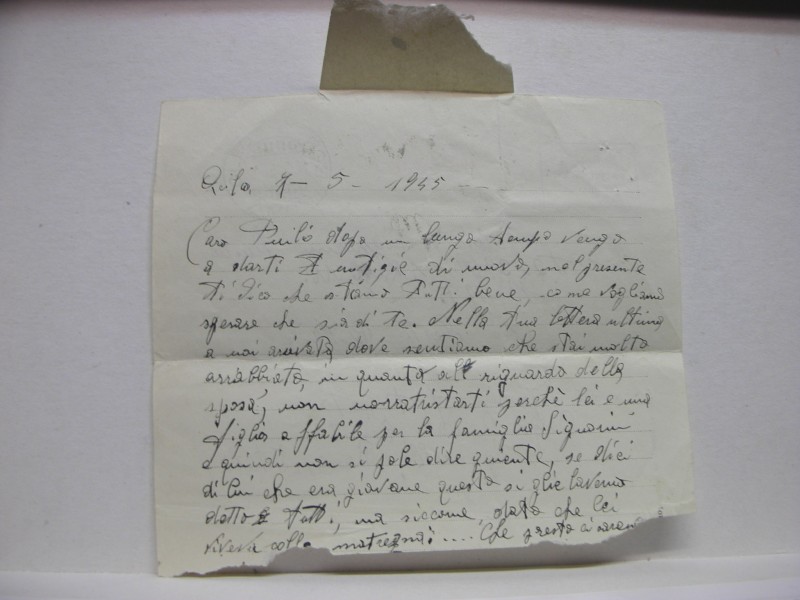 7 - 5 - 1945
Caro dopo un lungo tempo vengo
a darti notizie di nuovo, nel presente
ti dico che stiamo tutti bene, come vogliamo
sperare che sia di te. Nella tua lettera ultima
a noi arivata dove sentiamo che stai molto
arrabbiato, in quanto al riguardo della
sposa, non perchè lei è una
figlia affabile per la famiglia Signorini
e quindi non si pole dire gniente, se dici
di lui che era giovane questo si glie lavemo
datto tutti, ma siccome, dato che lei
viveva colla matregna .... Che presto ci